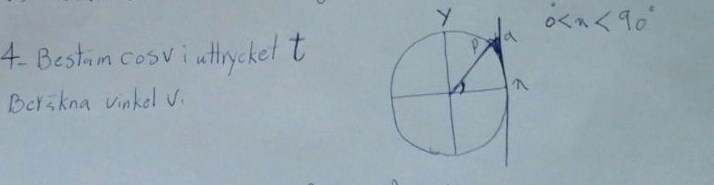 4- Bestäm cosv i uttrycket t
Beräkna vinkel v.
Y
0°<x<90°
P
a
x